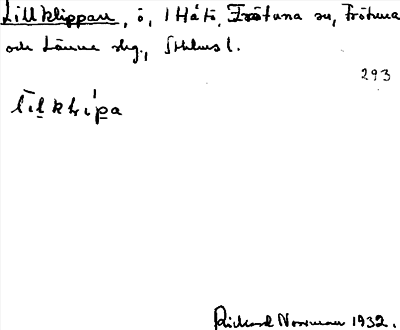 Lillklippan, ö, i Hätö, Frötuna sn, Frötuna
och Länna skg., Sthlms l.
293
lilklipa
Rickard Norrman 1932.